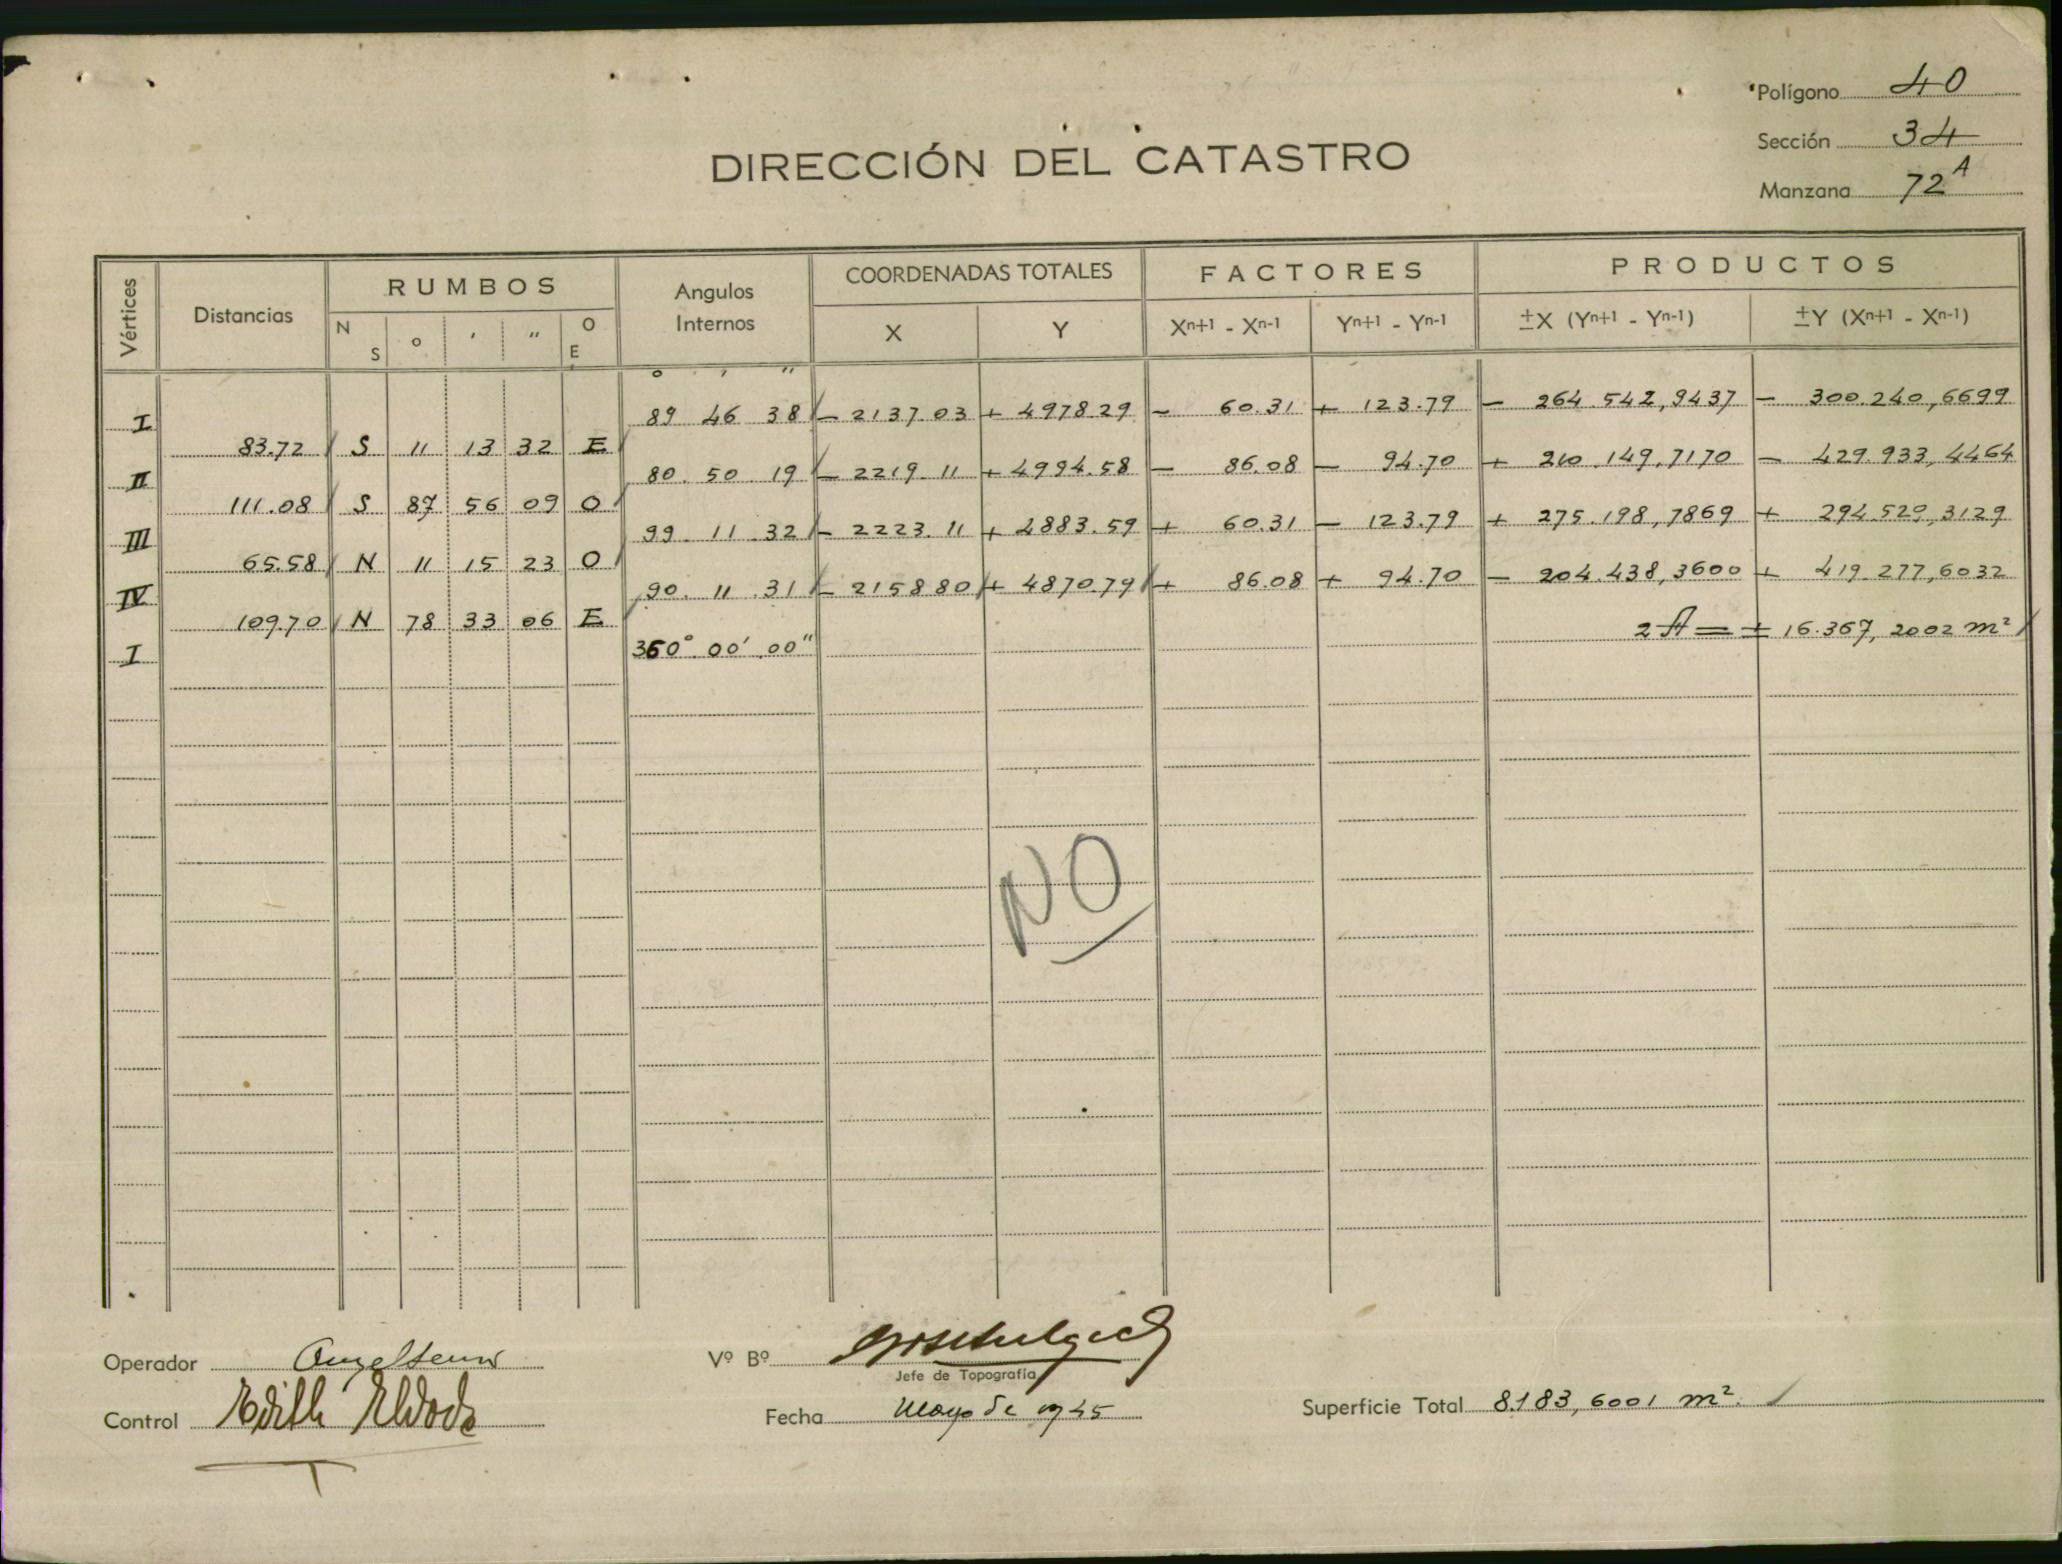 Polígono 40
Sección 34
Manzana 72A
DIRECCIÓN DEL CATASTRO
Vértices Distancias RUMBOS Angulos Internos COORDENADAS TOTALES FACTORES PRODUCTOS
N S o ' " O E X Y Xn+1 - Xn-1 Yn+1 - Yn-1 ±X (Yn+1 - Yn-1) ±Y (Xn+1 - Xn-1)
o ' "
I 89 46 38 - 2137.03 + 4978.29 - 60.31 + 123.79 - 264.542,9437 - 300.240,6699
83.72 S 11 13 32 E
II 80. 50 19 - 2219.11 + 4994.58 - 86.08 - 94.70 + 210.149,7170 - 429.933,4464
111.08 S 87 56 09 O
III 99. 11. 32 - 2223.11 + 4883.59 + 60.31 - 123.79 + 275.198,7869 + 294.529,3129
65.58 N 11 15 23 O
IV 90. 11. 31 - 2158.80 + 4870.79 + 86.08 + 94.70 - 204.438,3600 + 419.277,6032
109.70 N 78 33 06 E
2A = ± 16.367,2002 m²
I 360° 00' 00"
NO
Operador
Vº Bº
Jefe de Topografía
Control Edith
Fecha Mayo de 1945
Superficie Total 8.183,6001 m².